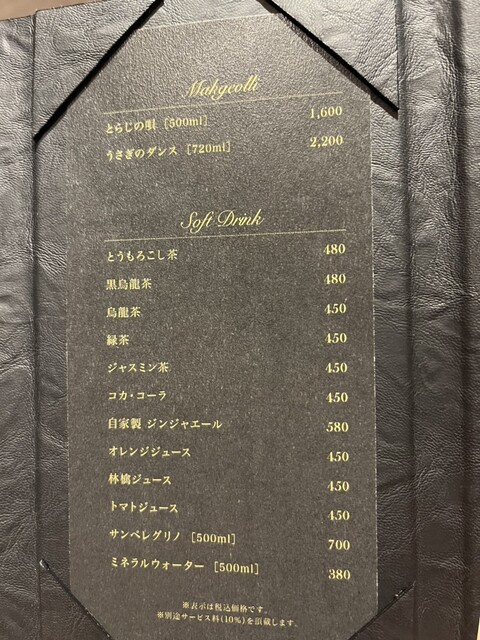 Makgeolli
とらじの唄 [500ml] 1,600
うさぎのダンス [720ml] 2,200
Soft Drink
とうもろこし茶 480
黒烏龍茶 480
烏龍茶 450
緑茶 450
ジャスミン茶 450
コカ・コーラ 450
自家製 ジンジャエール 580
オレンジジュース 450
林檎ジュース 450
トマトジュース 450
サンペレグリノ [500ml] 700
ミネラルウォーター [500ml] 380
※表示は税込価格です。
※別途サービス料(10%)を頂戴します。